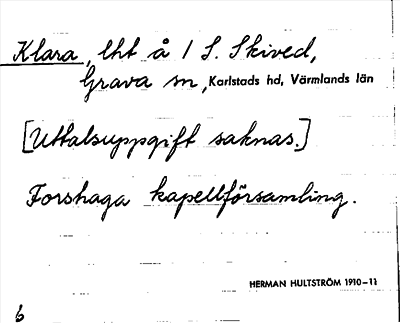 Klara, lht å 1 S. Skived,
Grava sn, Karlstads hd, Värmlands län
[Uttalsuppgift saknas.]
Forshaga kapellförsamling.
HERMAN HULTSTRÖM 1910–11
6